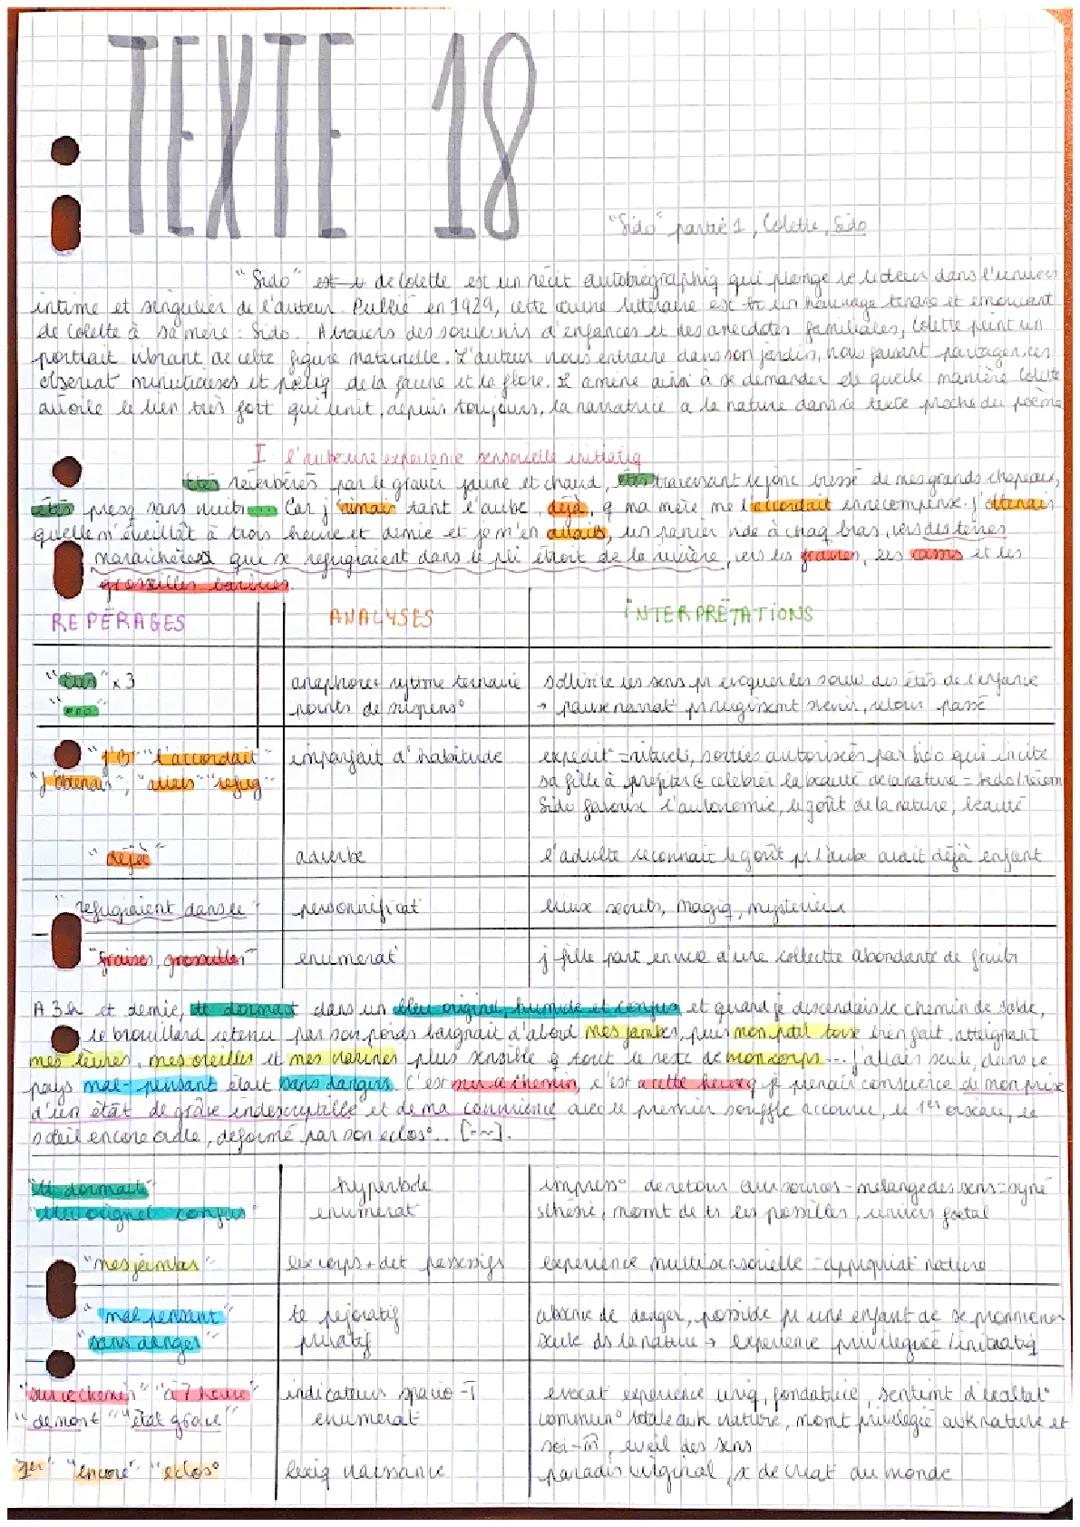 TEXTE 18
"Sido" partie 1, Colette, Sido
"Sido" est de Colette est un récit autobiographiq qui plonge le lecteur dans l'univers
intime et singulier de l'auteur. Publié en 1929, cette œuvre littéraire est un hommage tendre et émouvant
de Colette à sa mère : Sido. A travers des souvenirs d'enfances et des anecdotes familiales, Colette peint un
portrait vibrant de cette figure maternelle. L'auteur nous entraine dans son jardin, nous faisant partager ces
observat minutieuses et poétiq de la faune et la flore. amène ainsi à se demander de quelle manière Colette
dévoile le lien très fort qui unit, depuis toujours, la narratrice a la nature dans ce texte proche du poème
I l'aube une expérience sensorielle initiatiq
étés réverbérés par le gravier jaune et chaud, étés traversant le jonc tressé de mes grands chapeaux,
étés presq sans nuits ... Car j'aimais tant l'aube, déjà, q ma mère me l'accordait en récompense. J'obtenais
qu'elle m'éveillât à trois heure et demie et je m'en allais, un panier vide à chaq bras, vers des terres
maraichères qui se refugiaient dans le pli étroit de la rivière, vers les fraises, les cassis et les
groseilles barbues.
REPÉRAGES ANALYSES INTERPRÉTATIONS
"étés" x3 anaphore + rytme ternaire sollicite les sens pr évoquer les souv des étés de l'enfance
"..." points de suspens° → pause narrat° pr surgissent svenir, retour passé
"l'accordait" imparfait d'habitude expédit° = rituels, sorties autorisées par Sido qui incite
"j'obtenais", "allais" "refug" sa fille à profiter & célébrer la beauté de la nature =
Sido favorise l'autonomie, le goût de la nature, beauté
"déjà" adverbe l'adulte reconnait le goût pr l'aube avait déjà enfant
"refugiaient dans le" personnificat° lieux secrets, magiq, mystérieux
"fraises, groseilles" enumerat° j fille part en vue d'une collecte abondante de fruits
A 3h et demie, tt dormait dans un bleu originel, humide et confus, et quand je descendais le chemin de sable,
le brouillard retenu par son poids baignait d'abord mes jambes, puis mon petit torse bien fait, atteignant
mes lèvres, mes oreilles et mes narines plus sensible q tout le reste de mon corps... J'allais seule, dans ce
pays mal-pensant était sans dangers. C'est sur ce chemin, c'est à cette heure q je prenais conscience de mon prix
d'un état de grâce indescriptible et de ma connivence avec le premier souffle accouru, le 1er oiseau, le
soleil encore ovale, déformé par son eclos°... [...].
"tt dormait" hyperbole impress° de retour aux sources = mélange des sens = syné
"bleu originel confus" enumérat° sthésie, momt de ts les possibles, univers foetal
"mes jambes" lex corps + det possessifs expérience multisensorielle = appropriat° nature
"mal pensant" te pejoratif absence de danger, possible pr une enfant de se promener
"sans danger" privatif seule ds la nature → expérience privilégiée / initiatiq
"sur ce chemin" "à 7 heure" indicateur spacio-T evocat° expérience uniq, fondatrice, sentimt d'exaltat°
"de mon" "état grâce" enumérat° commun° totale avk nature, momt privilégié avk nature et
soi-m̂, eveil des sens
"1er" "encore" "éclos°" lexiq naissance paradis originel, de créat° du monde